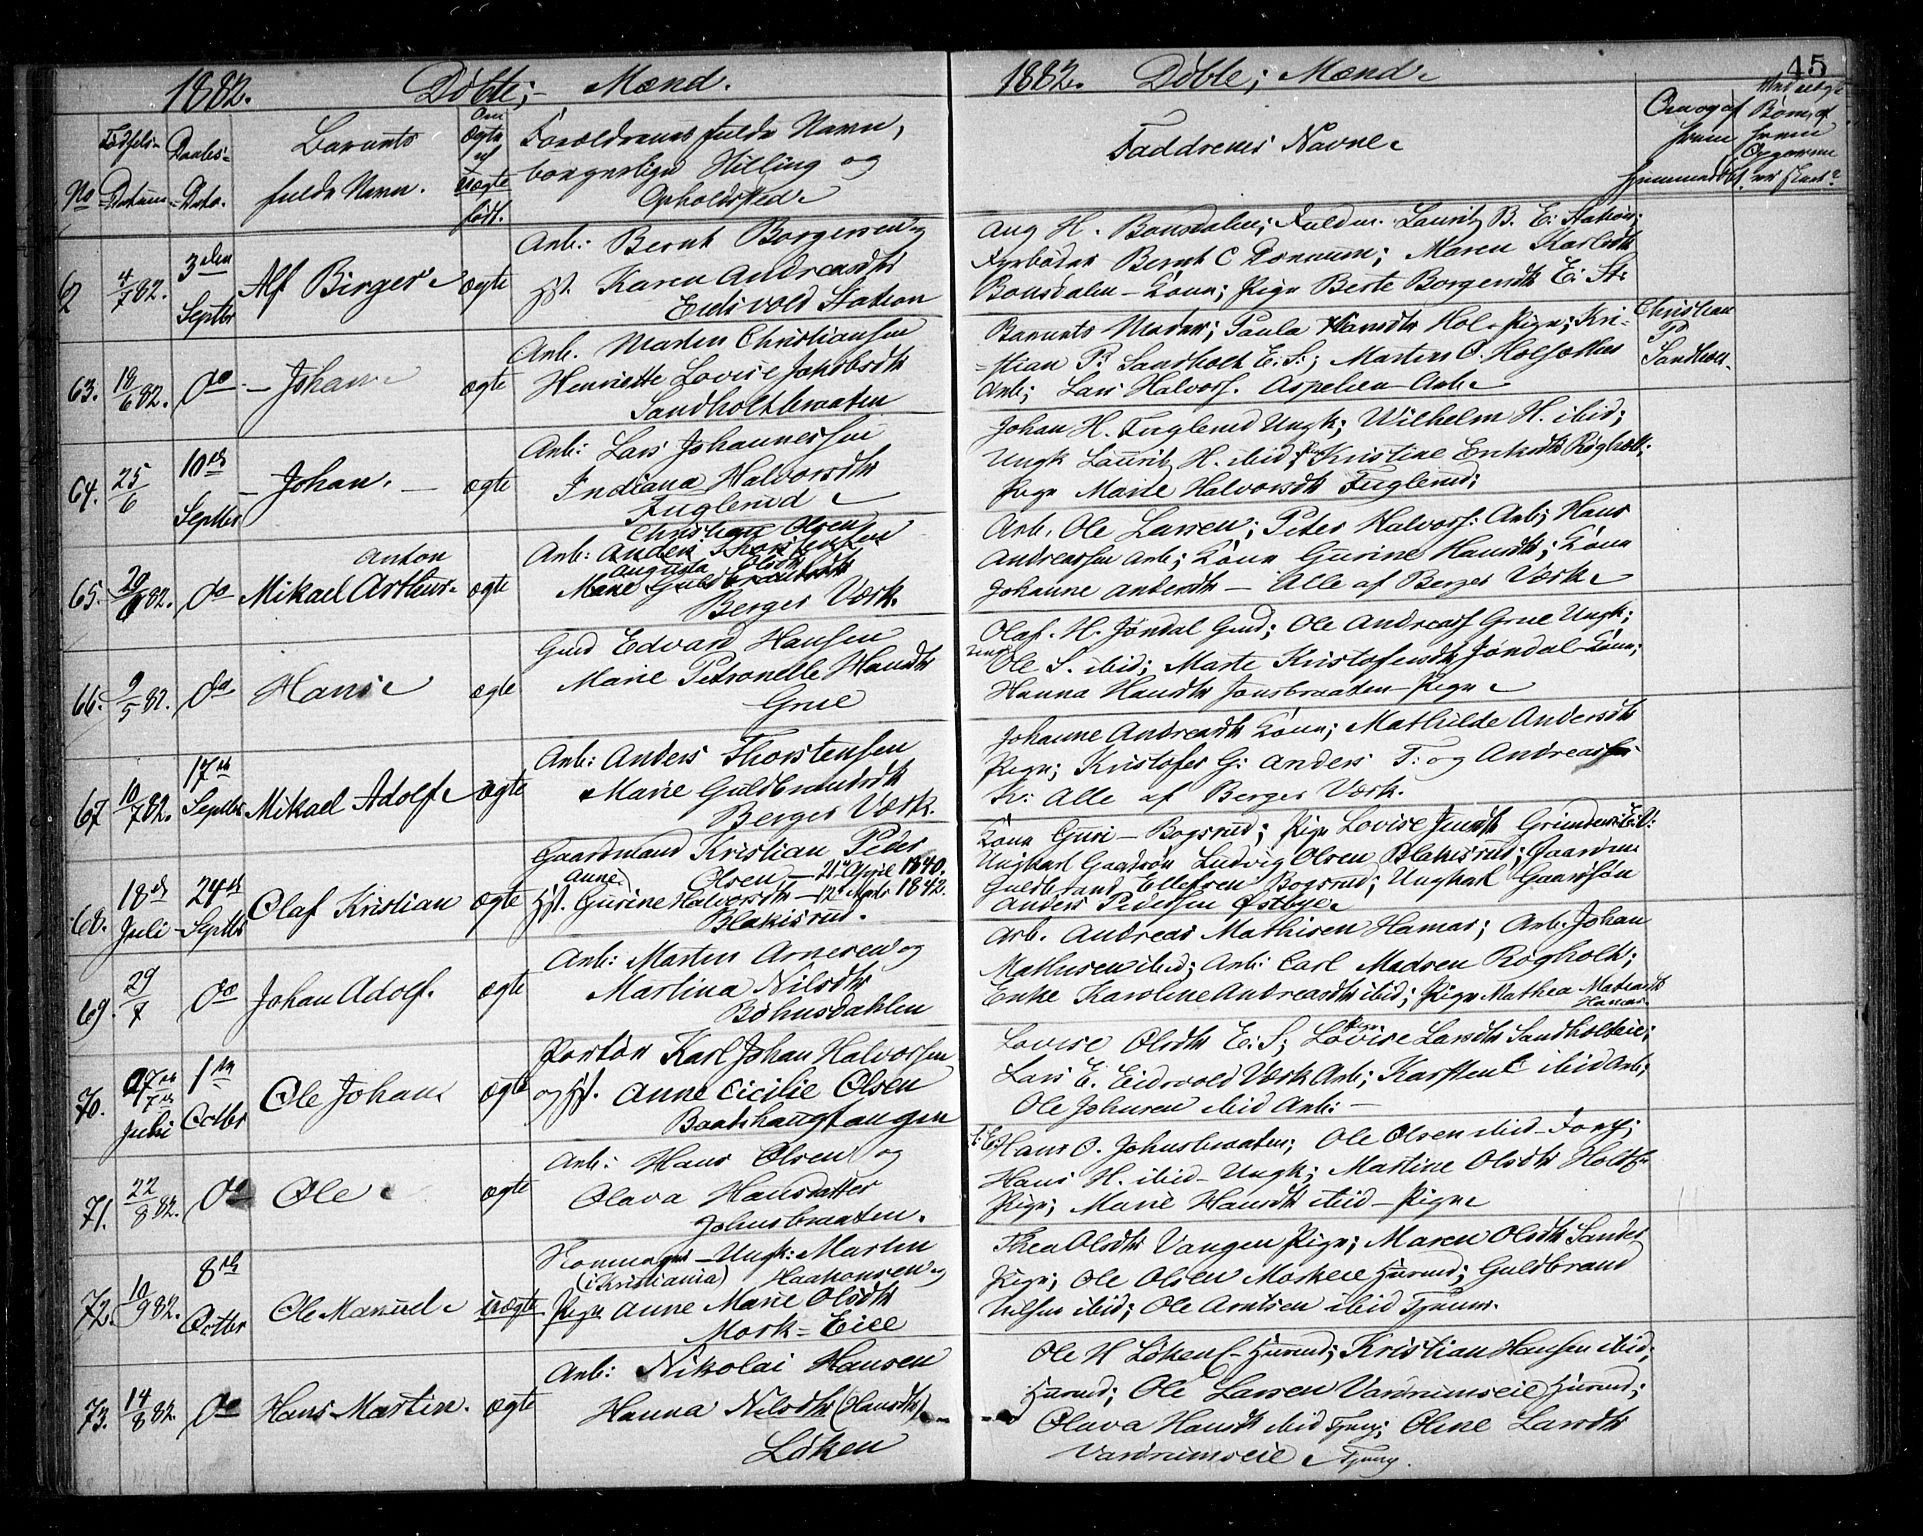 1882. Døbte; Mænd.
No
Fødsels-
Datum
Daabs-
Dato.
Barnets
fulde Navn.
Om
Ægte
el
Uægte
født.
Forældrenes fulde Navn,
borgerlige Stilling og
Opholdsted.
62
4/7 82.
3den
Septbr
Alf Birger
ægte
Arb: Bernt Borgersen og
Hst. Karen Andreasdtr
Eidsvold Station
63.
18/6 82.
do
Johan
ægte
Arb. Martin Christiansen
Henriette Lovise Jakobsdtr
Sandholtbraaten
64.
25/6
10de
Septbr
Johan.
ægte
Arb: Lars Johannessen
Indiana Halvorsdtr
Fuglerud
65.
82.
do
Anton
Mikael Arthur
ægte
Christian Olsen
Arb: Anders Thorstensen
Augusta Olsdtr
Marie Guldbrandsdtr
Berger Værk.
66.
9/5 82.
do
Hans
ægte
Gmd Edvard Hansen
Marie Petronelle Hansdtr
Grue
67
10/7 82.
17de
Septbr
Mikael Adolf
ægte
Arb: Anders Thorstensen
Marie Guldbrandsdtr
Berger Værk.
68.
18de
Juli
24de
Septbr
Olaf Kristian
ægte
Gaardmand Kristian Peder
Olsen — 21de April 1840.
Anne
Hst. Gurine Halvorsdtr — 12te 1842.
Blakisrud.
69.
29/7
do
Johan Adolf.
ægte
Arb: Martin Arnesen og
Martina Nilsdtr
Bøhnsdahlen
70.
Juli
1ste
Octbr
Ole Johan
ægte
Portør Karl Johan Halvorsen
og Hst. Anne Cicilie Olsen
Baatshaugtangen
71.
22/8 82.
do
Ole
ægte
Arb: Hans Olsen og
Olava Hansdatter
Johnsbraaten.
72.
10/9 82.
8de
Octbr
Ole Manuel
uægte
Ungk: Martin
(i Kristiania) Haakonsen og
Pige Anne Marie Olsdtr
Mork-Eie
73.
14/8 82.
do
Hans Martin.
ægte
Arb: Nikolai Hansen
Hanna Nilsdtr (Hansdtr)
Løken
1882. Døbte; Mænd.
45
Faddrenes Navne
Om og af
hvem
hjemmedøbt.
Ved uægte
Børn, af
hvem
Opgaven
er skeet?
Aug H. Bonsdalen; Lauritz B. E: Station;
Fyrbøder Bernt C Dønnum; Maren Karlsdtr
Bonsdalen – Kone; Pige Berte Borgersdtr E: St:
Barnets Moder; Paula Hansdtr Hol – Pige; Kri-
stian P: Sandholt E. S:; Martin O. Holsokken
Arb; Lars Halvors. Aspelien – Arb.
Christian
P.
Sandholt.
Johan H. Fuglerud Ungk; Wilhelm H. ibid;
Ungk Lauritz H. ibid; Kristine Eriksdtr Rogholt;
Pige Marie Halvorsdtr Fuglerud;
Arb. Ole Larsen; Peder Halvors: Arb; Hans
Andreassen Arb; Kone Gurine Hansdtr; Kone
Johanne Andersdtr — Alle af Berger Værk
Olaf. H. Jøndal Gmd; Ole Andreass Grue Ungk;
Ole S. ibid; Marte Kristofersdtr Jøndal – Kone;
Hanna Hansdtr Jonsbraaten – Pige
Johanne Andreasdtr Kone; Mathilde Andersdtr
Pige; Kristofer G: Anders T: og Andreas
K: Alle af Berger Værk.
Kone Guri – Bogsrud; Pige Lovise
Ungkarl Gaardsøn Ludvig Olsen Blakisrud; Gaardm
Guldbrand Ellefsen Bogsrud; Ungkarl Gaardsøn
Anders Pedersen Østbye
Arb. Andreas Mathisen Hamar; Arb. Johan
Mathisen ibid; Arb: Carl Madsen Rogholt;
Enke Karoline Andreasdtr ibid; Pige Mathea
Hamar
Pige
Lovise Olsdtr E. S; Lovise Larsdtr Sandholteie;
Lars E. Eidsvold Værk Arb; Karsten L ibid Arb;
Ole Johnsen ibid Arb: —
Hans O. Johnsbraaten; Ole Olsen ibid –
Hans H. ibid – Ungk; Martine Olsdtr
Pige; Marie Hansdtr ibid – Pige
Thea Olsdtr Vangen Pige; Maren Olsdtr Sandes
Pige; Ole Olsen Morkeie Husmd; Guldbrand
Nilsen ibid; Ole Arntsen ibid
Ole H Løken Husmd; Kristian Hansen ibid;
Husmd; Ole Larsen Vardrumseie Husmd;
Olava Hansdtr ibid Oline Larsdtr
Vardrumseie